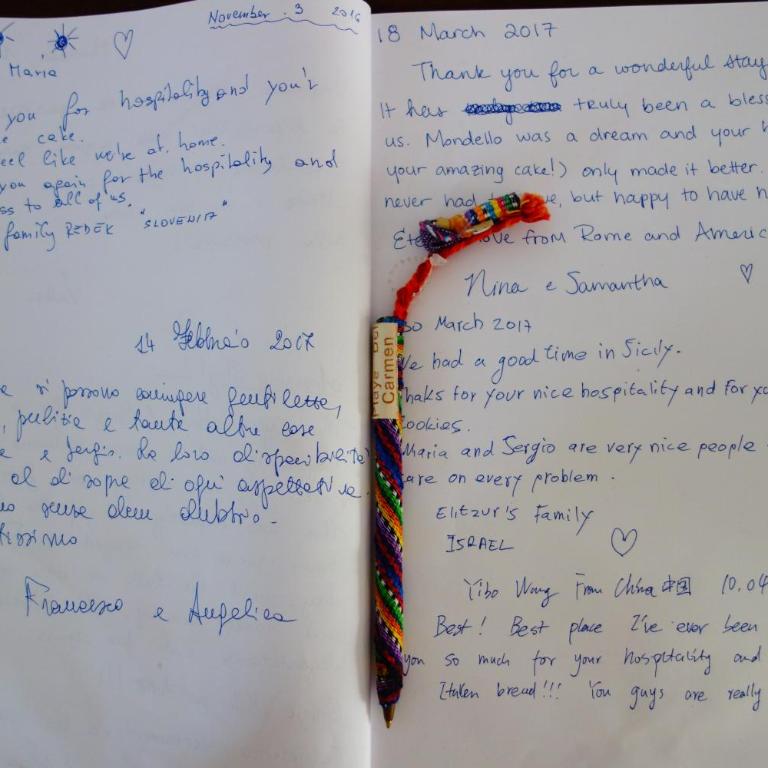 November 3 2016
Maria
you for hospitality and you'r
cake.
eel like we're at home.
you again for the hospitality and
ss to all of us.
family REDEK "SLOVENIA"
14 Febbraio 2017
si possono coniugare gentilezza,
pulizia e tante altre cose
e Sergio. La loro disponibilità
al di sopra di ogni aspettativa.
senza alcun dubbio.
tissimo
Francesco e Angelica
18 March 2017
Thank you for a wonderful stay
It has truly been a bless
us. Mondello was a dream and your h
your amazing cake!) only made it better.
never had ve, but happy to have h
Ete love from Rome and Americ
Nina e Samantha
30 March 2017
We had a good time in Sicily.
haks for your nice hospitality and for yo
cookies.
Maria and Sergio are very nice people
are on every problem.
Elitzur's Family
ISRAEL
Yibo Wang From China 中国 10.04
Best! Best place I've ever been
you so much for your hospitality and
Italen bread!!! You guys are really
Playa Del
Carmen